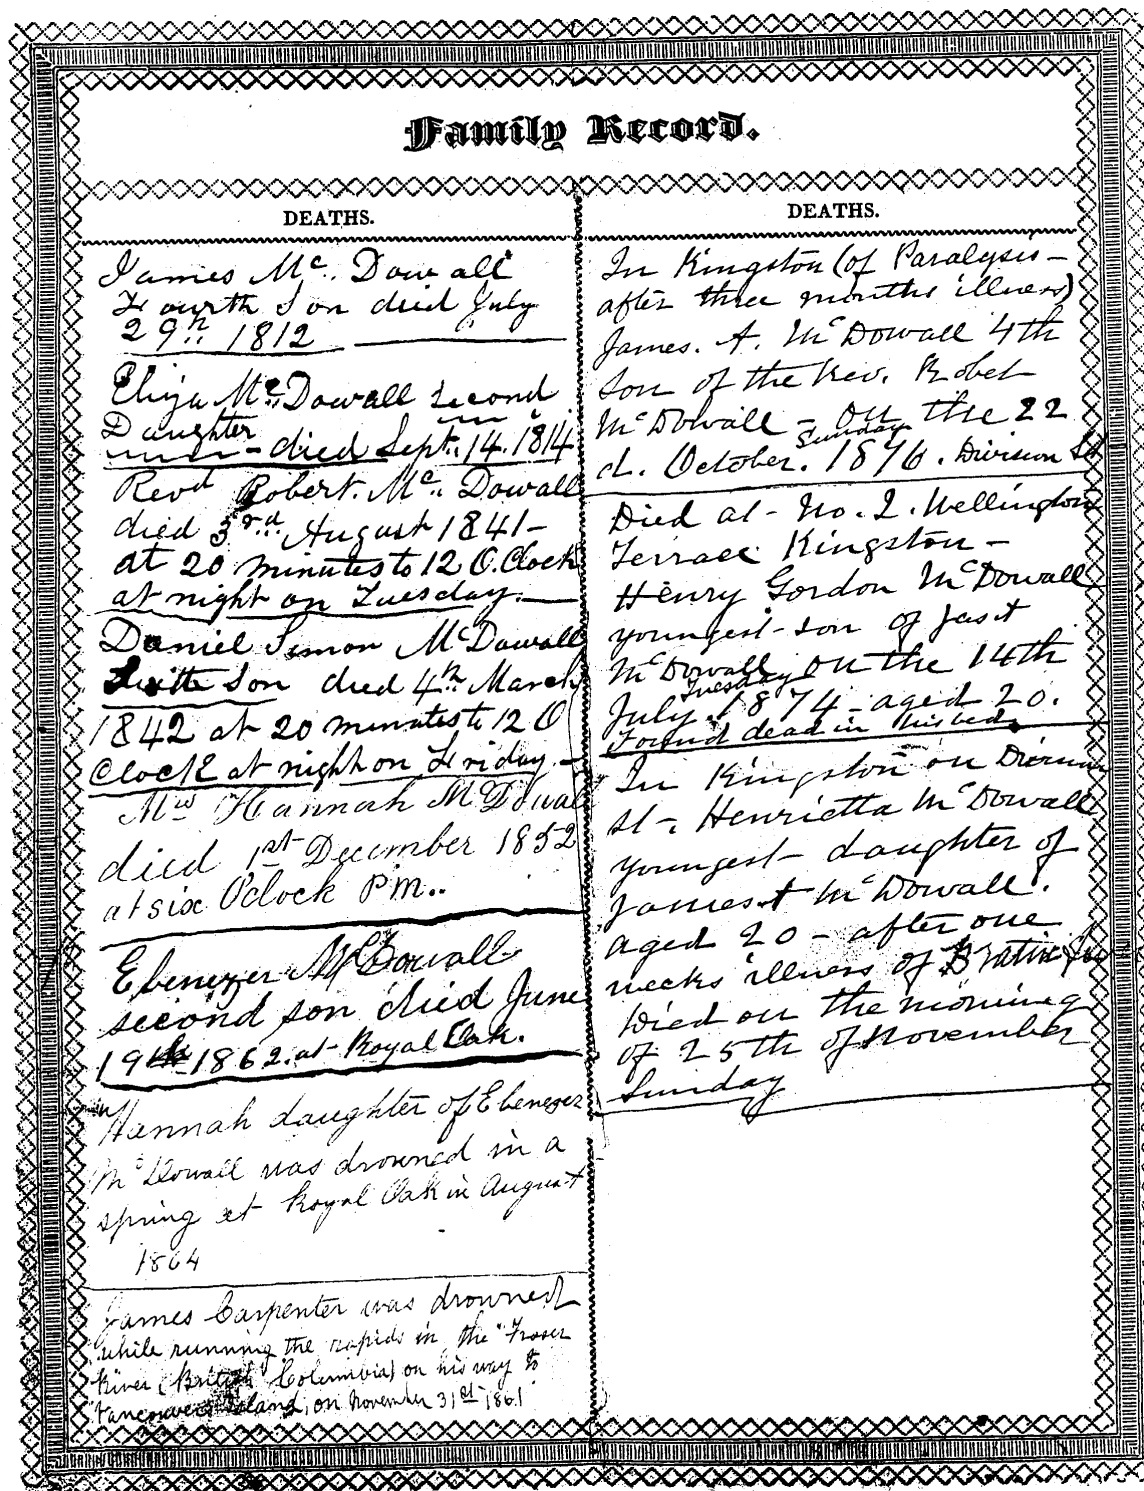 Family Record.
DEATHS.
James Mc. Dowall
Fourth Son died July
29th 1812
Eliza Mc. Dowall second
Daughter - died Sept. 14. 1814
Revd Robert. Mc. Dowall
died 3rd August 1841 -
at 20 minutes to 12 O.Clock
at night on Tuesday.
Daniel Simon McDowall
Sixth Son died 4th March
1842 at 20 minutes to 12 O
Clock at night on Friday. -
Mrs Hannah McDowall
died 1st December 1852
at six O'clock P.M..
Ebenezer McDowall
second son died June
19th 1862. at Royal Oak.
Hannah daughter of Ebenezer
McDowall was drowned in a
spring at Royal Oak in August
1864
James Carpenter was drowned
while running the rapids in the "Fraser
River (British Columbia) on his way to
Vancouver's Island, on November 31st 1861
DEATHS.
In Kingston (of Paralysis -
after three months illness)
James. A. McDowall 4th
Son of the Rev. Robet
McDowall - On the 22
d. October. Sunday 1876. Division St
Died at - No. 2. Wellington
Terrace Kingston -
Henry Gordon McDowall
youngest - son of Jas
McDowall on the 14th
July. Tuesday 1874 - aged 20.
Found dead in his bed.
In Kingston on Division
St -. Henrietta McDowall
youngest - daughter of
James McDowall.
aged 20 - after one
weeks illness of
Died on the morning
of 25th of November
Sunday